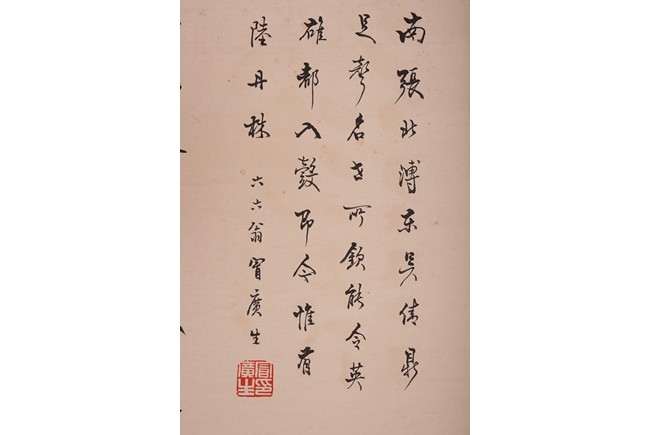 南張北溥東吳倩鼎
足聲名世所欽能令英
雄都入彀即今惟有
陸丹林 六六翁甯廣生
甯印廣生